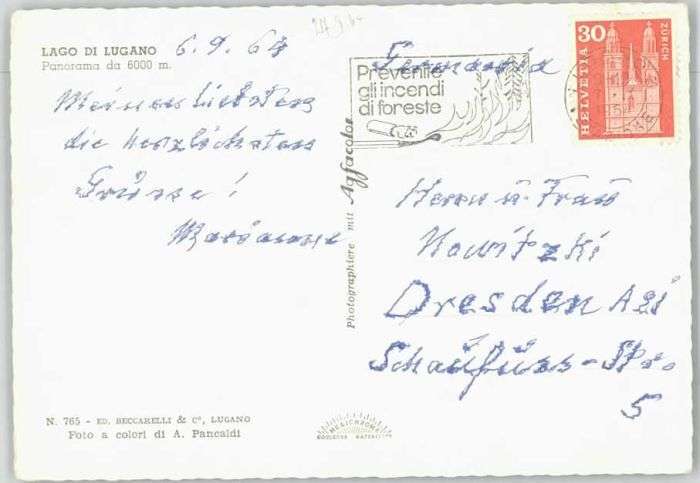 LAGO DI LUGANO
Panorama da 6000 m.
6.9.64
Meinen liebsten
die herzlichsten
Grüsse!
Marianne
N. 765 - ED. BECCARELLI & Cº, LUGANO
Foto a colori di A. Pancaldi
Photographiere mit Agfacolor
Germania
Prevenite
gli incendi
di foreste
30
HELVETIA
ZÜRICH
Herrn u. Frau
Nowitzki
Dresden A21
Schaufuss-Str.
5
MEXICHROME